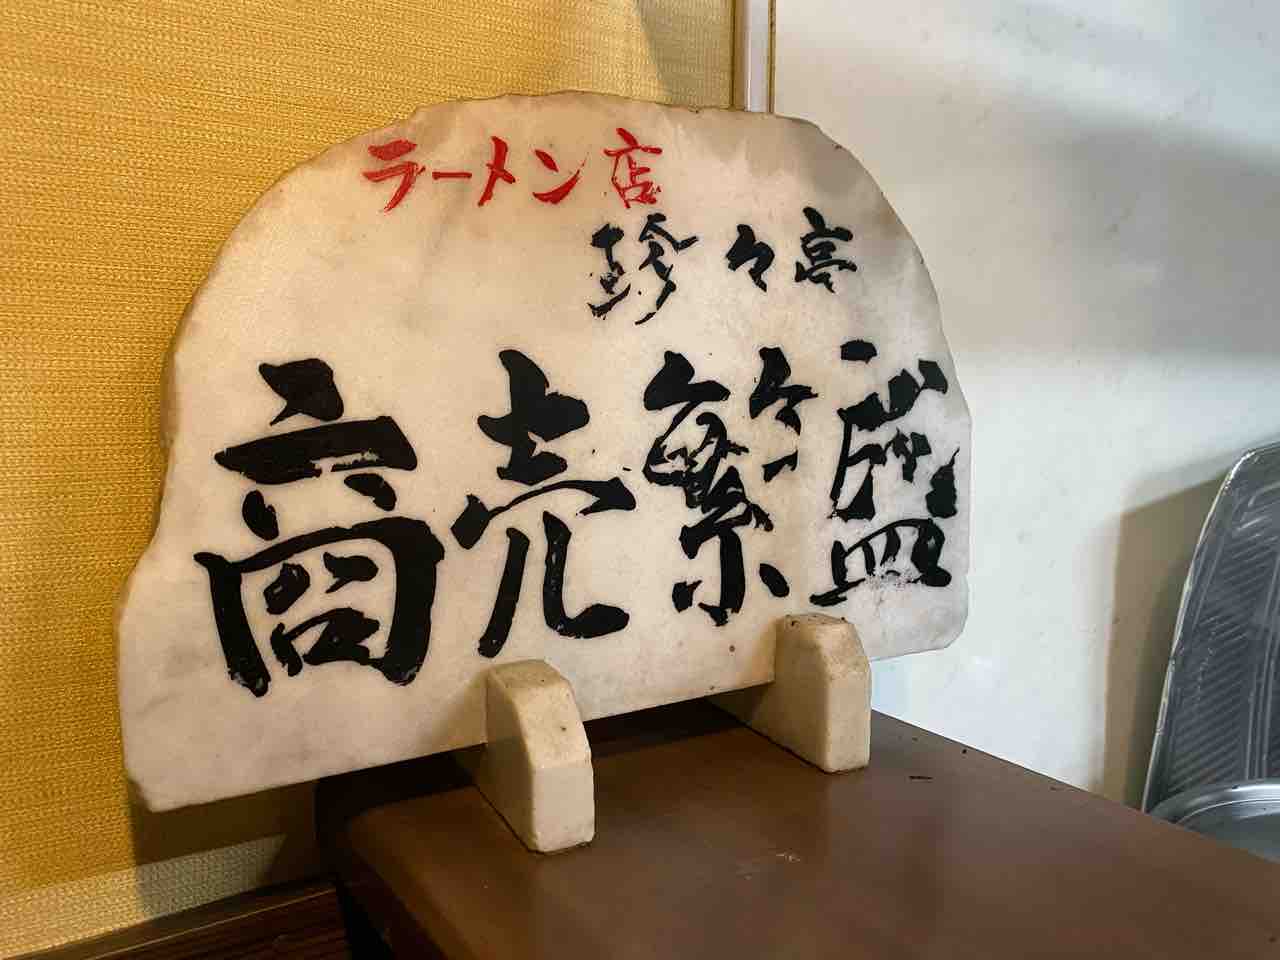 ラーメン店
珍々亭
商売繁盛